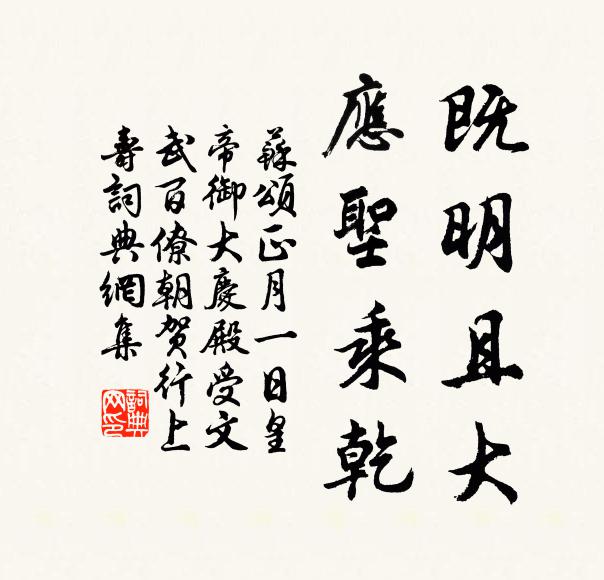 既明且大
應聖乘乾
蘇頌正月一日皇
帝御大慶殿受文
武百僚朝贺行上
壽詞典網集
詞典網印